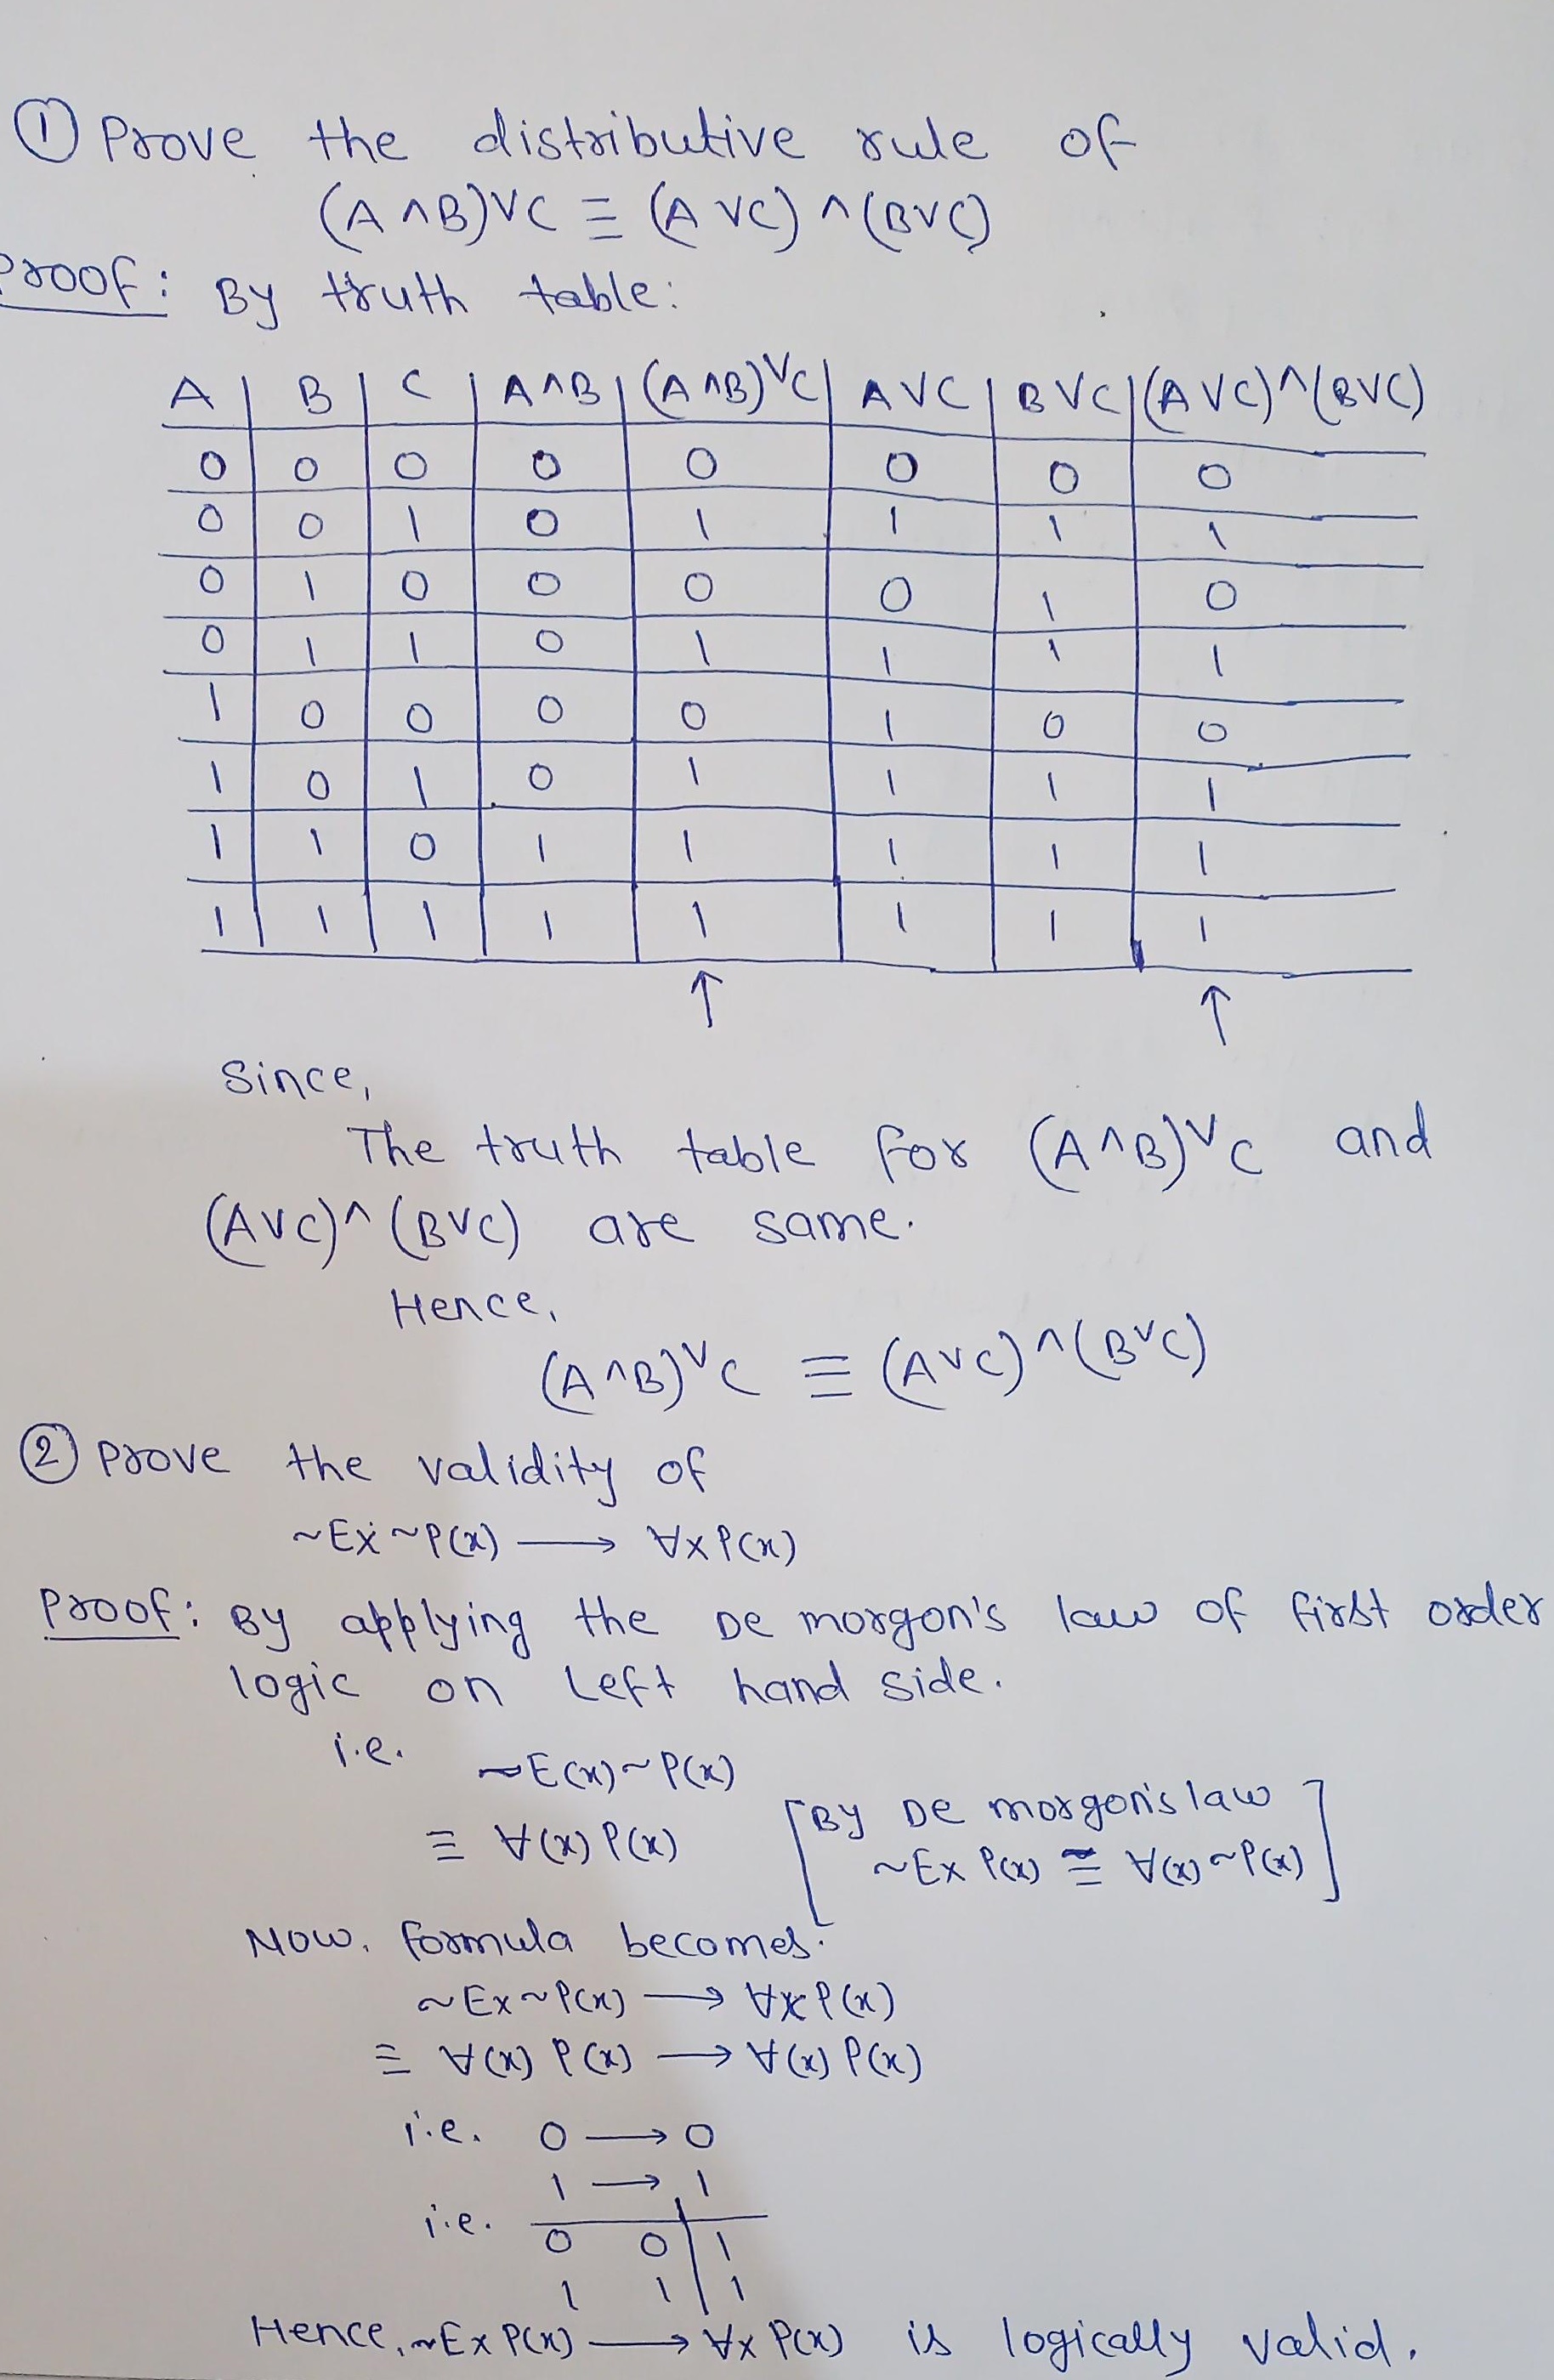 ① Prove the distributive rule of
(A ∧ B) ∨ C ≡ (A ∨ C) ∧ (B ∨ C)
Proof: By truth table:
A | B | C | A ∧ B | (A ∧ B) ∨ C | A ∨ C | B ∨ C | (A ∨ C) ∧ (B ∨ C)
0 | 0 | 0 | 0 | 0 | 0 | 0 | 0
0 | 0 | 1 | 0 | 1 | 1 | 1 | 1
0 | 1 | 0 | 0 | 0 | 0 | 1 | 0
0 | 1 | 1 | 0 | 1 | 1 | 1 | 1
1 | 0 | 0 | 0 | 0 | 1 | 0 | 0
1 | 0 | 1 | 0 | 1 | 1 | 1 | 1
1 | 1 | 0 | 1 | 1 | 1 | 1 | 1
1 | 1 | 1 | 1 | 1 | 1 | 1 | 1
↑ ↑
Since,
The truth table for (A ∧ B) ∨ C and
(A ∨ C) ∧ (B ∨ C) are same.
Hence,
(A ∧ B) ∨ C ≡ (A ∨ C) ∧ (B ∨ C)
② Prove the validity of
~Ex ~P(x) ⟶ ∀x P(x)
Proof: By applying the De morgon's law of first order
logic on Left hand side.
i.e.
~E(x) ~ P(x)
≡ ∀(x) P(x) [By De morgon's law
~Ex P(x) ≡ ∀(x) ~P(x)]
Now, formula becomes:
~Ex ~P(x) ⟶ ∀x P(x)
≡ ∀(x) P(x) ⟶ ∀(x) P(x)
i.e. 0 ⟶ 0
1 ⟶ 1
i.e.
0 0 | 1
1 1 | 1
Hence, ~Ex P(x) ⟶ ∀x P(x) is logically valid.